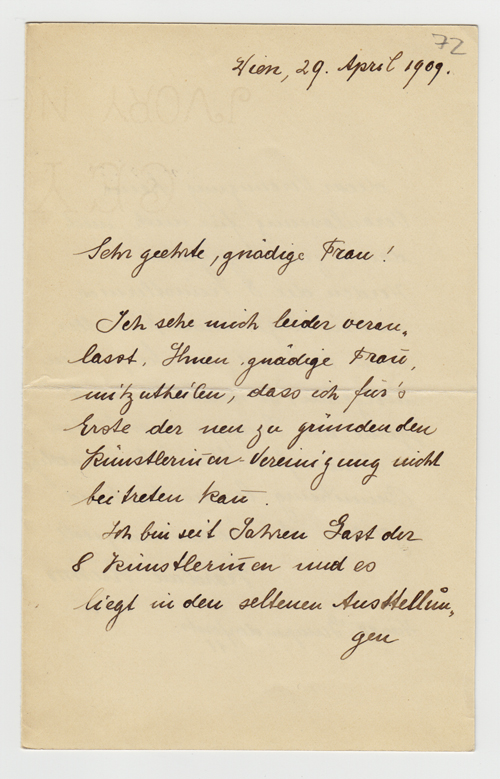 72
Wien, 29. April 1909.
Sehr geehrte, gnädige Frau!
Ich sehe mich leider veran-
lasst, Ihnen, gnädige Frau,
mitzutheilen, dass ich für's
Erste der neu zu gründenden
Künstlerin̄en-Vereinigung nicht
beitreten kan̄.
Ich bin seit Jahren Gast der
8 Künstlerin̄en und es
liegt in den seltenen Ausstellun-
gen